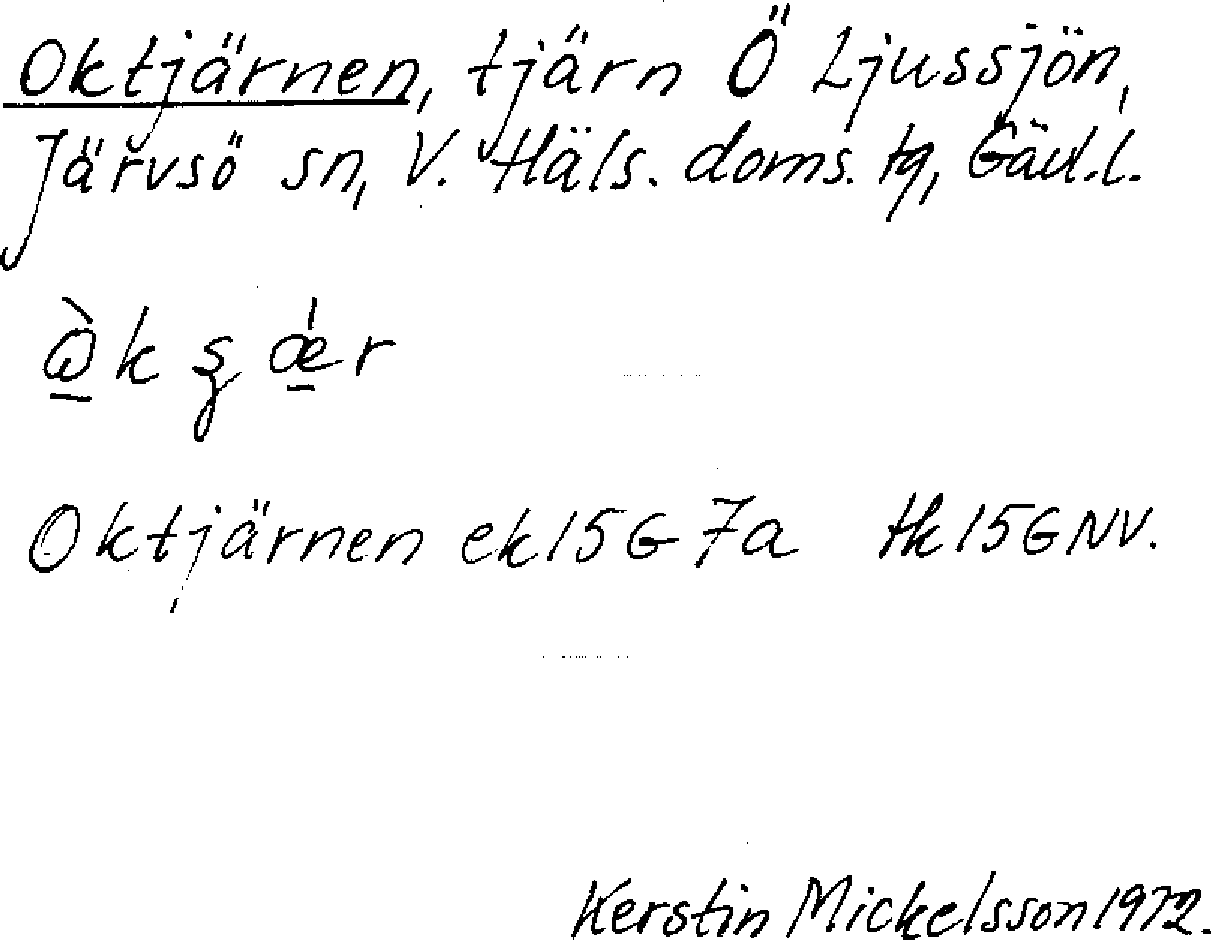 Oktjärnen, tjärn Ö Ljussjön,
Järvsö sn, V. Häls. doms. tg, Gävl.l.
Oktjärnen ek15G7a tk15GNV.
Kerstin Mickelsson 1972.